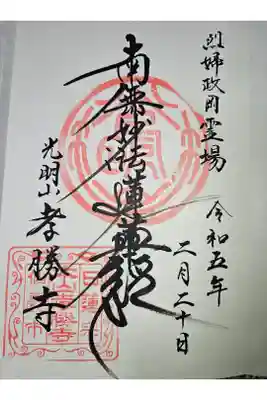 烈婦政岡霊場
令和五年
二月二十日
南無妙法蓮華経
光明山 孝勝寺